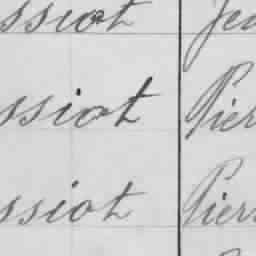 ssiot Jea
ssiot Pier
ssiot Pierr